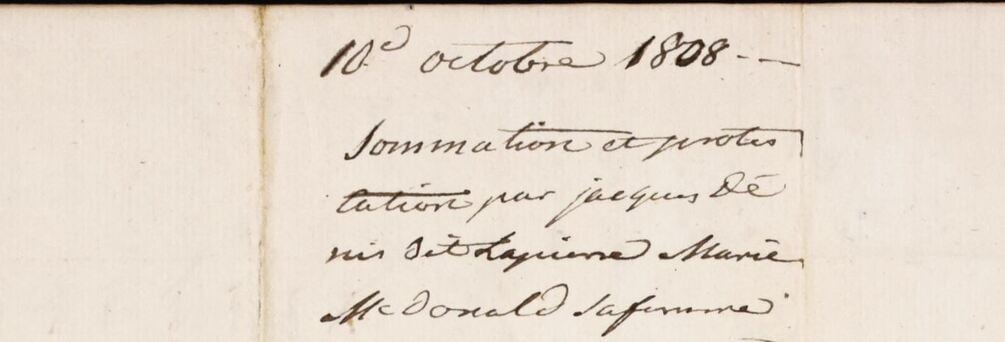 10.e octobre 1808 - -
Sommation et protes
tation par jacques Dé
nis dit Lapierre Marie
McDonald sa femme